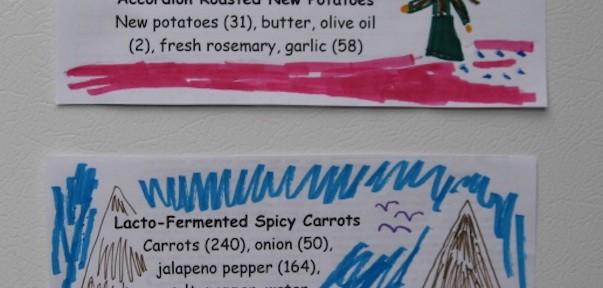 Accordion Roasted New Potatoes
New potatoes (31), butter, olive oil
(2), fresh rosemary, garlic (58)
Lacto-Fermented Spicy Carrots
Carrots (240), onion (50),
jalapeno pepper (164),
salt, pepper, water